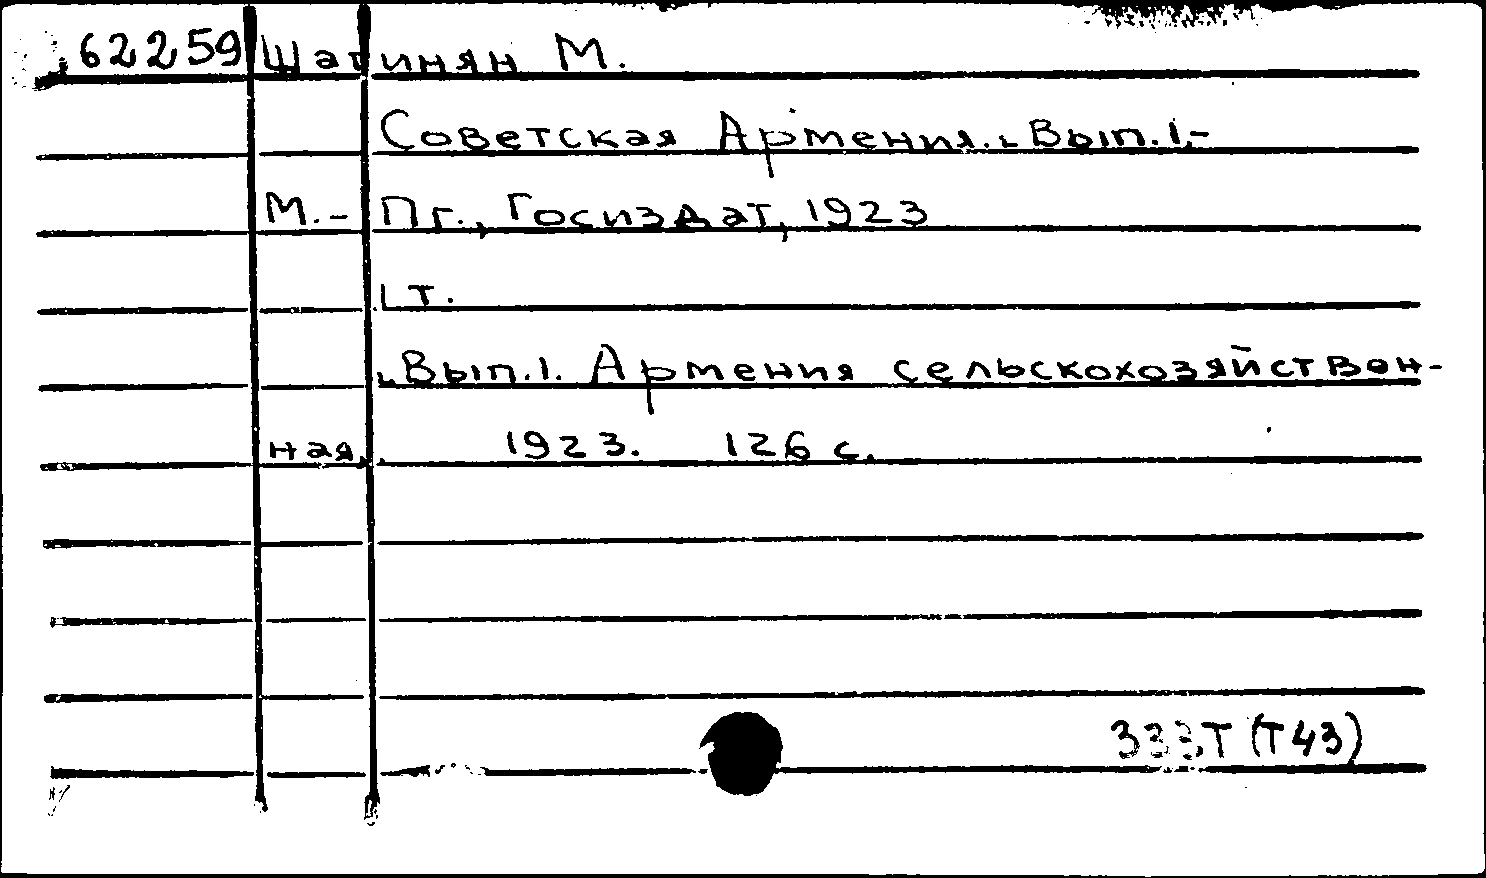 62259 Шагинян М.
Советская Армения. Вып.1.-
М.- Пг., Госиздат, 1923
1 т.
Вып.1. Армения сельскохозяйствен-
ная. 1923. 126 с.
333Т (Т43)